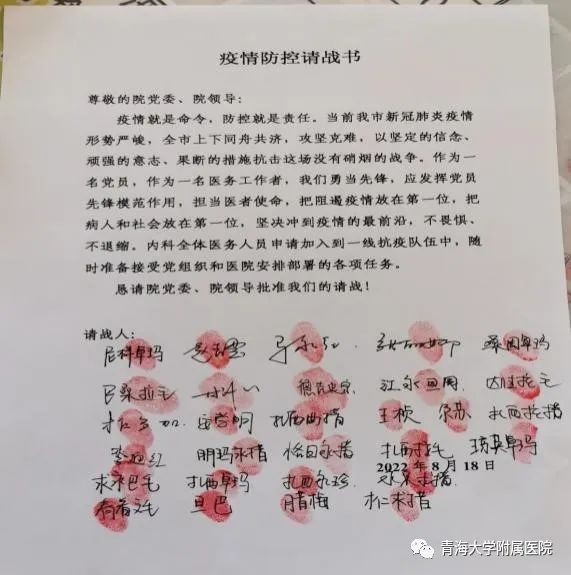 疫情防控请战书
尊敬的院党委、院领导:
疫情就是命令，防控就是责任。当前我市新冠肺炎疫情
形势严峻，全市上下同舟共济，攻坚克难，以坚定的信念、
顽强的意志、果断的措施抗击这场没有硝烟的战争。作为一
名党员，作为一名医务工作者，我们勇当先锋，应发挥党员
先锋模范作用，担当医者使命，把阻遏疫情放在第一位，把
病人和社会放在第一位，坚决冲到疫情的最前沿，不畏惧、
不退缩。内科全体医务人员申请加入到一线抗疫队伍中，随
时准备接受党组织和医院安排部署的各项任务。
恳请院党委、院领导批准我们的请战！
请战人：
尼科卓玛 桑周卓玛
扎西曲措 王桢 扎西拉措
李迎红 明玛永措 恰日永措
2022年8月18日
求补巴毛 扎西卓玛 扎西永珍
旦巴 腊梅
青海大学附属医院